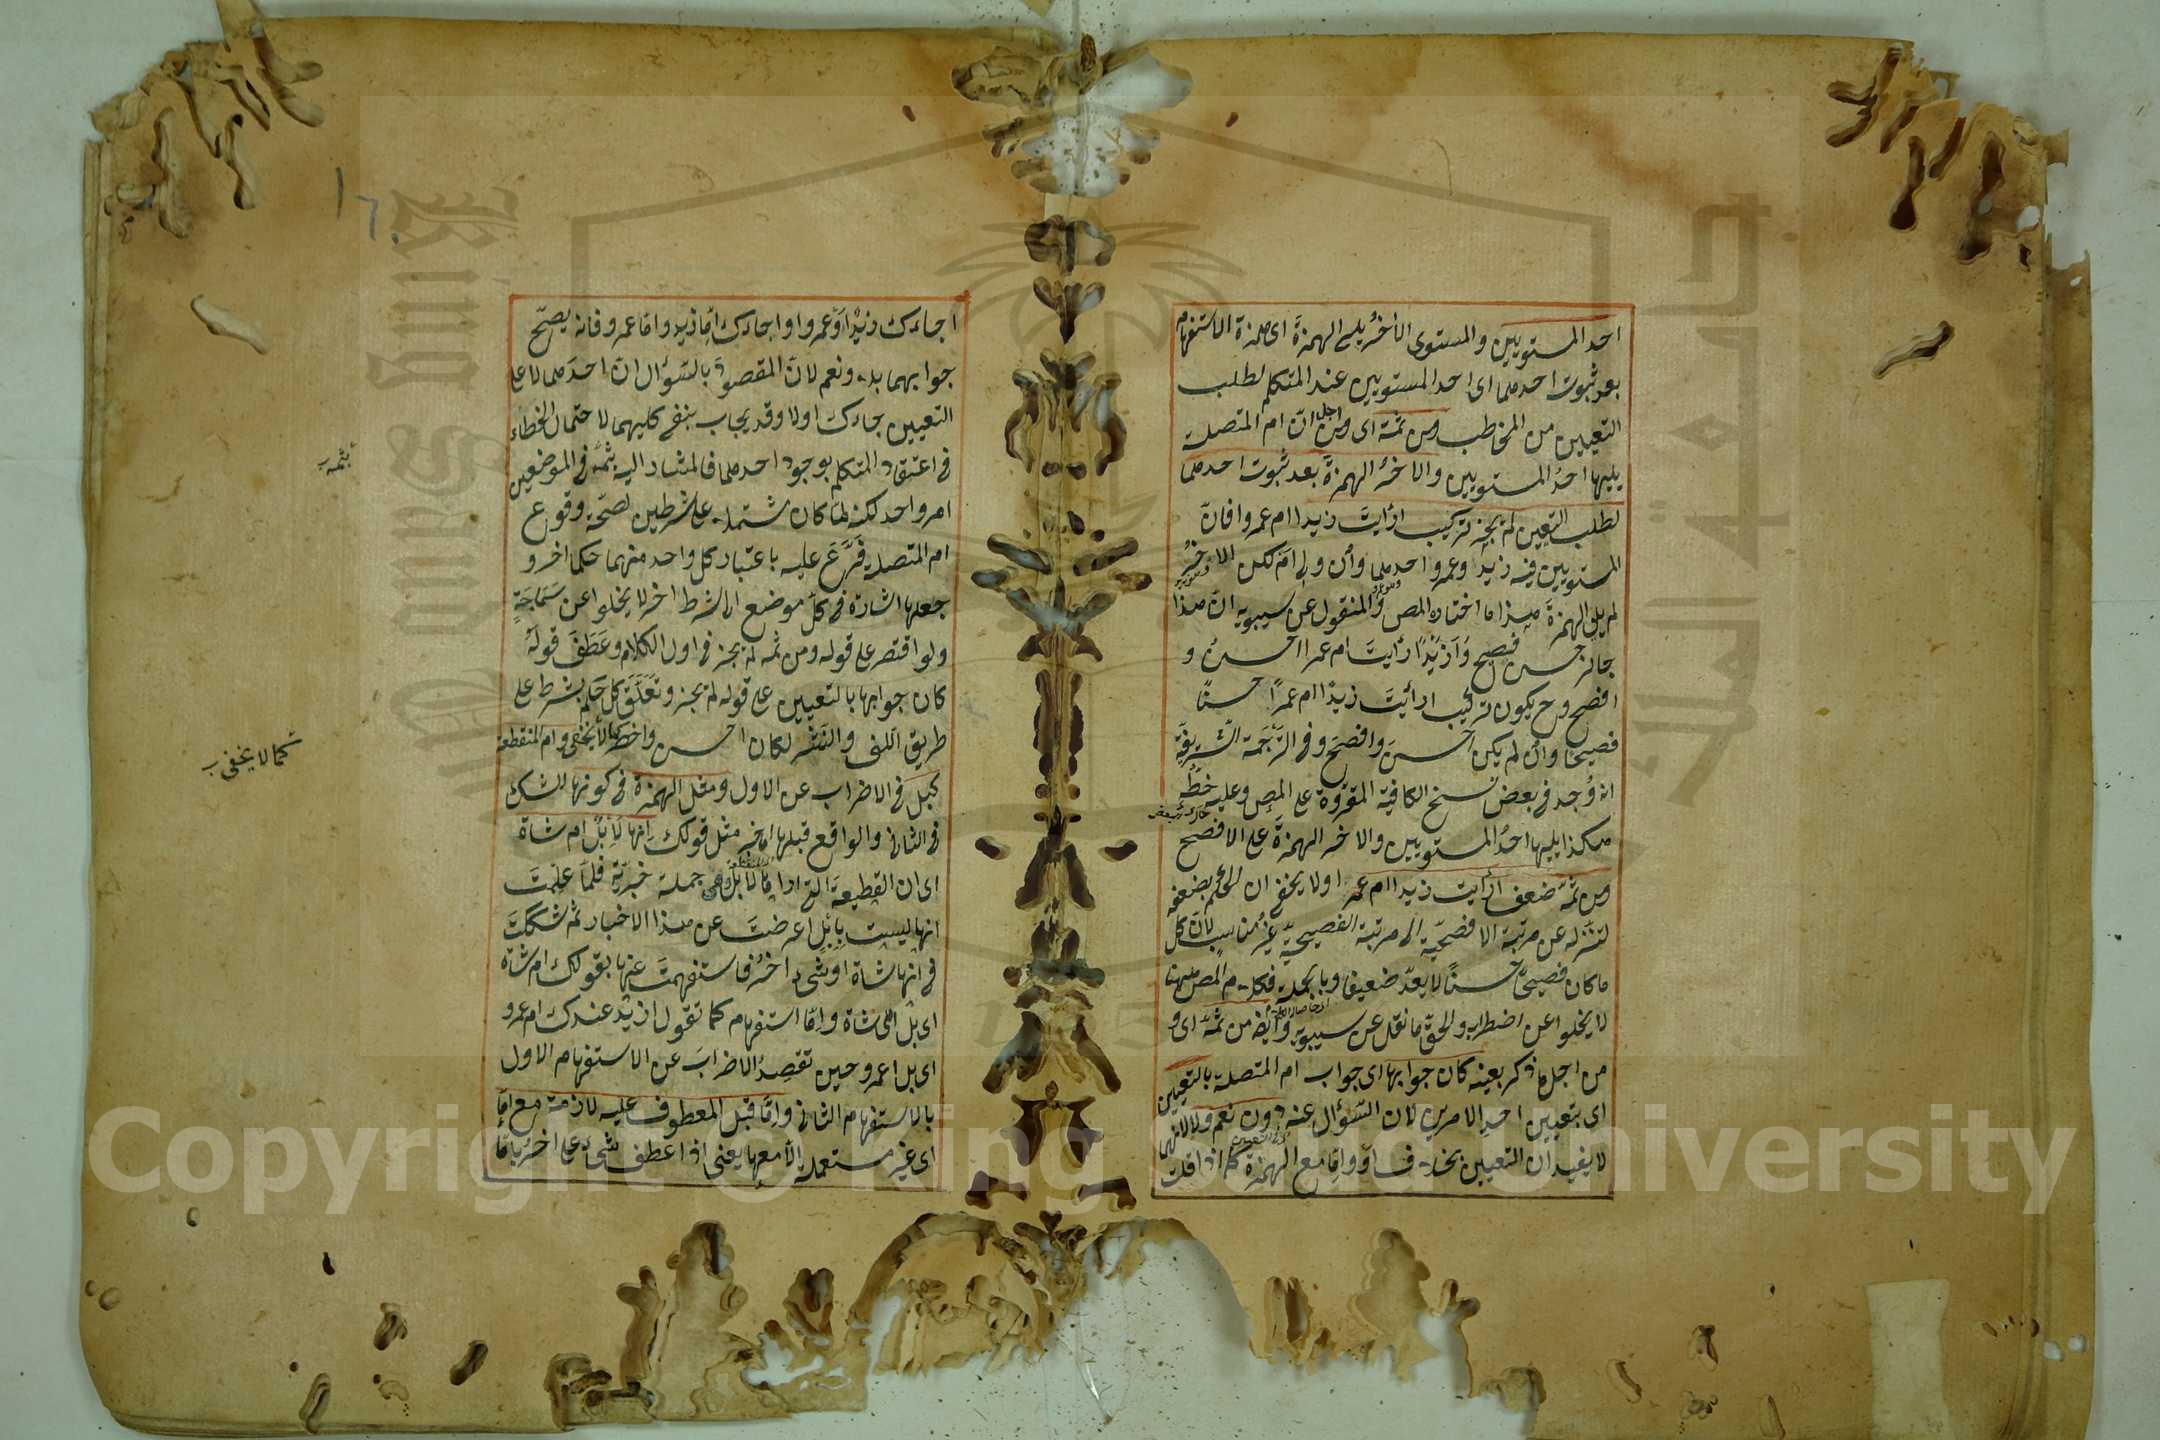 احد المستويين والمستوى الآخر يلى الهمزة اى همزة الاستفهام
بعد ثبوت احدهما اى احد المستويين عند المتكلم لطلب
التعيين من المخاطب ومن ثمة اى ومن اجل انّ ام المتصلة
يليها احدُ المستويين والاخرُ الهمزةَ بعد ثبوت احدهما
لطلب التعيين لم يجز تركيب ارأيتَ زيدا ام عمروا فانّ
المستويين فيه زيدا وعمروا احدهما وأن ولى ام لكن الاخرُ
لم يلى الهمزة هذا ما اختاره المص والمنقول عن سيبويه انّ هذا
جائز حسن فصيح وأزيدًا رأيتَ ام عمرا احسن و
افصح وح يكون تركيب ارأيتَ زيدًا ام عمرًا حسنًا
فصيحًا وأن لم يكن احسنَ وافصحَ وفى الترجمة الشريفة
انه وُجد فى بعض نسخ الكافية المقروة على المص وعليه خطّه
هكذا يليها احدُ المستويين والاخر الهمزةَ على الافصح
ومن ثمّة ضعف ارأيت زيدا ام عمروا ولا يخفى ان الحكم بضعفه
لتنزله عن مرتبة الافصحيّة الى مرتبة الفصيحيّة غيرُ مناسب لانّ كل
ما كان فصيحًا حسنًا لا يعدّ ضعيفا وبالجملة فكلام المص ههنا
لا يخلوا عن اضطراب والحق ما نقل عن سيبويه وأيضا من ثمّة اى و
من اجل ما ذكر بعينه كان جوابها اى جواب ام المتصلة بالتعيين
اى بتعيين احد الامرين لان السؤال عنه دون نعم ولا لانهما
لا يفيدان التعيين بخلاف او واما مع الهمزة كما اذا قلت
اجاءك زيدٌ او عمروا واجاءك إمّا زيد واما عمرو فانه يصحّ
جوابهما بلا ونعم لانّ المقصود بالسؤال انّ احدهما لا على
التعيين جاءك اولا وقد يجاب بنفى كليهما لاحتمال الخطاء
فى اعتقاد المتكلم بوجود احدهما فالمشار اليه بثمّه فى الموضعين
امر واحد لكنه لمّا كان مشتملا على شرطين لصحّة وقوع
ام المتصلة فَرَّعَ عليه باعتبار كل واحد منهما حكما اخر و
جعلها اشارة فى كلّ موضع الى شرط اخر لا يخلوا عن سَمَاجَةٍ
ولو اقتصر على قوله ومن ثمّه لم يجز فى اول الكلام وعَطَفَ قولَهُ
كان جوابها بالتعيين على قوله لم يجز وتَعَلَّقَ كل حكم بشرط على
طريق اللف والنشر لكان احسن واخصر كما لا يخفى وام المنقطعة
كبل فى الاضراب عن الاول ومثل الهمزة فى كونها للشك
فى الثانى والواقع قبلها اما خبر مثل قولك إنها لَإبلٌ ام شاة
اى ان القطيعة التى اراها لإبلٌ وهى جملة خبريّة فلمّا علمتَ
انها ليست بإبل اعرضتَ عن هذا الاخبار ثم شككتَ
فى انها شاة او شىء اخرُ فاستفهمتَ عنها بقولك ام شاة
اى بل اهى شاة وإمّا استفهام كما تقول ازيدٌ عندك ام عمرو
اى بل اعمرو حين تقصدُ الاضرابَ عن الاستفهام الاول
بالاستفهام الثانى وإمّا قبل المعطوف عليه لازمة مع امّا
اى غير مستعملة الّا معها يعنى اذا عطف شىء على اخرُ بامّا
بثمّه
كما لا يخفى
Copyright © King Saud University